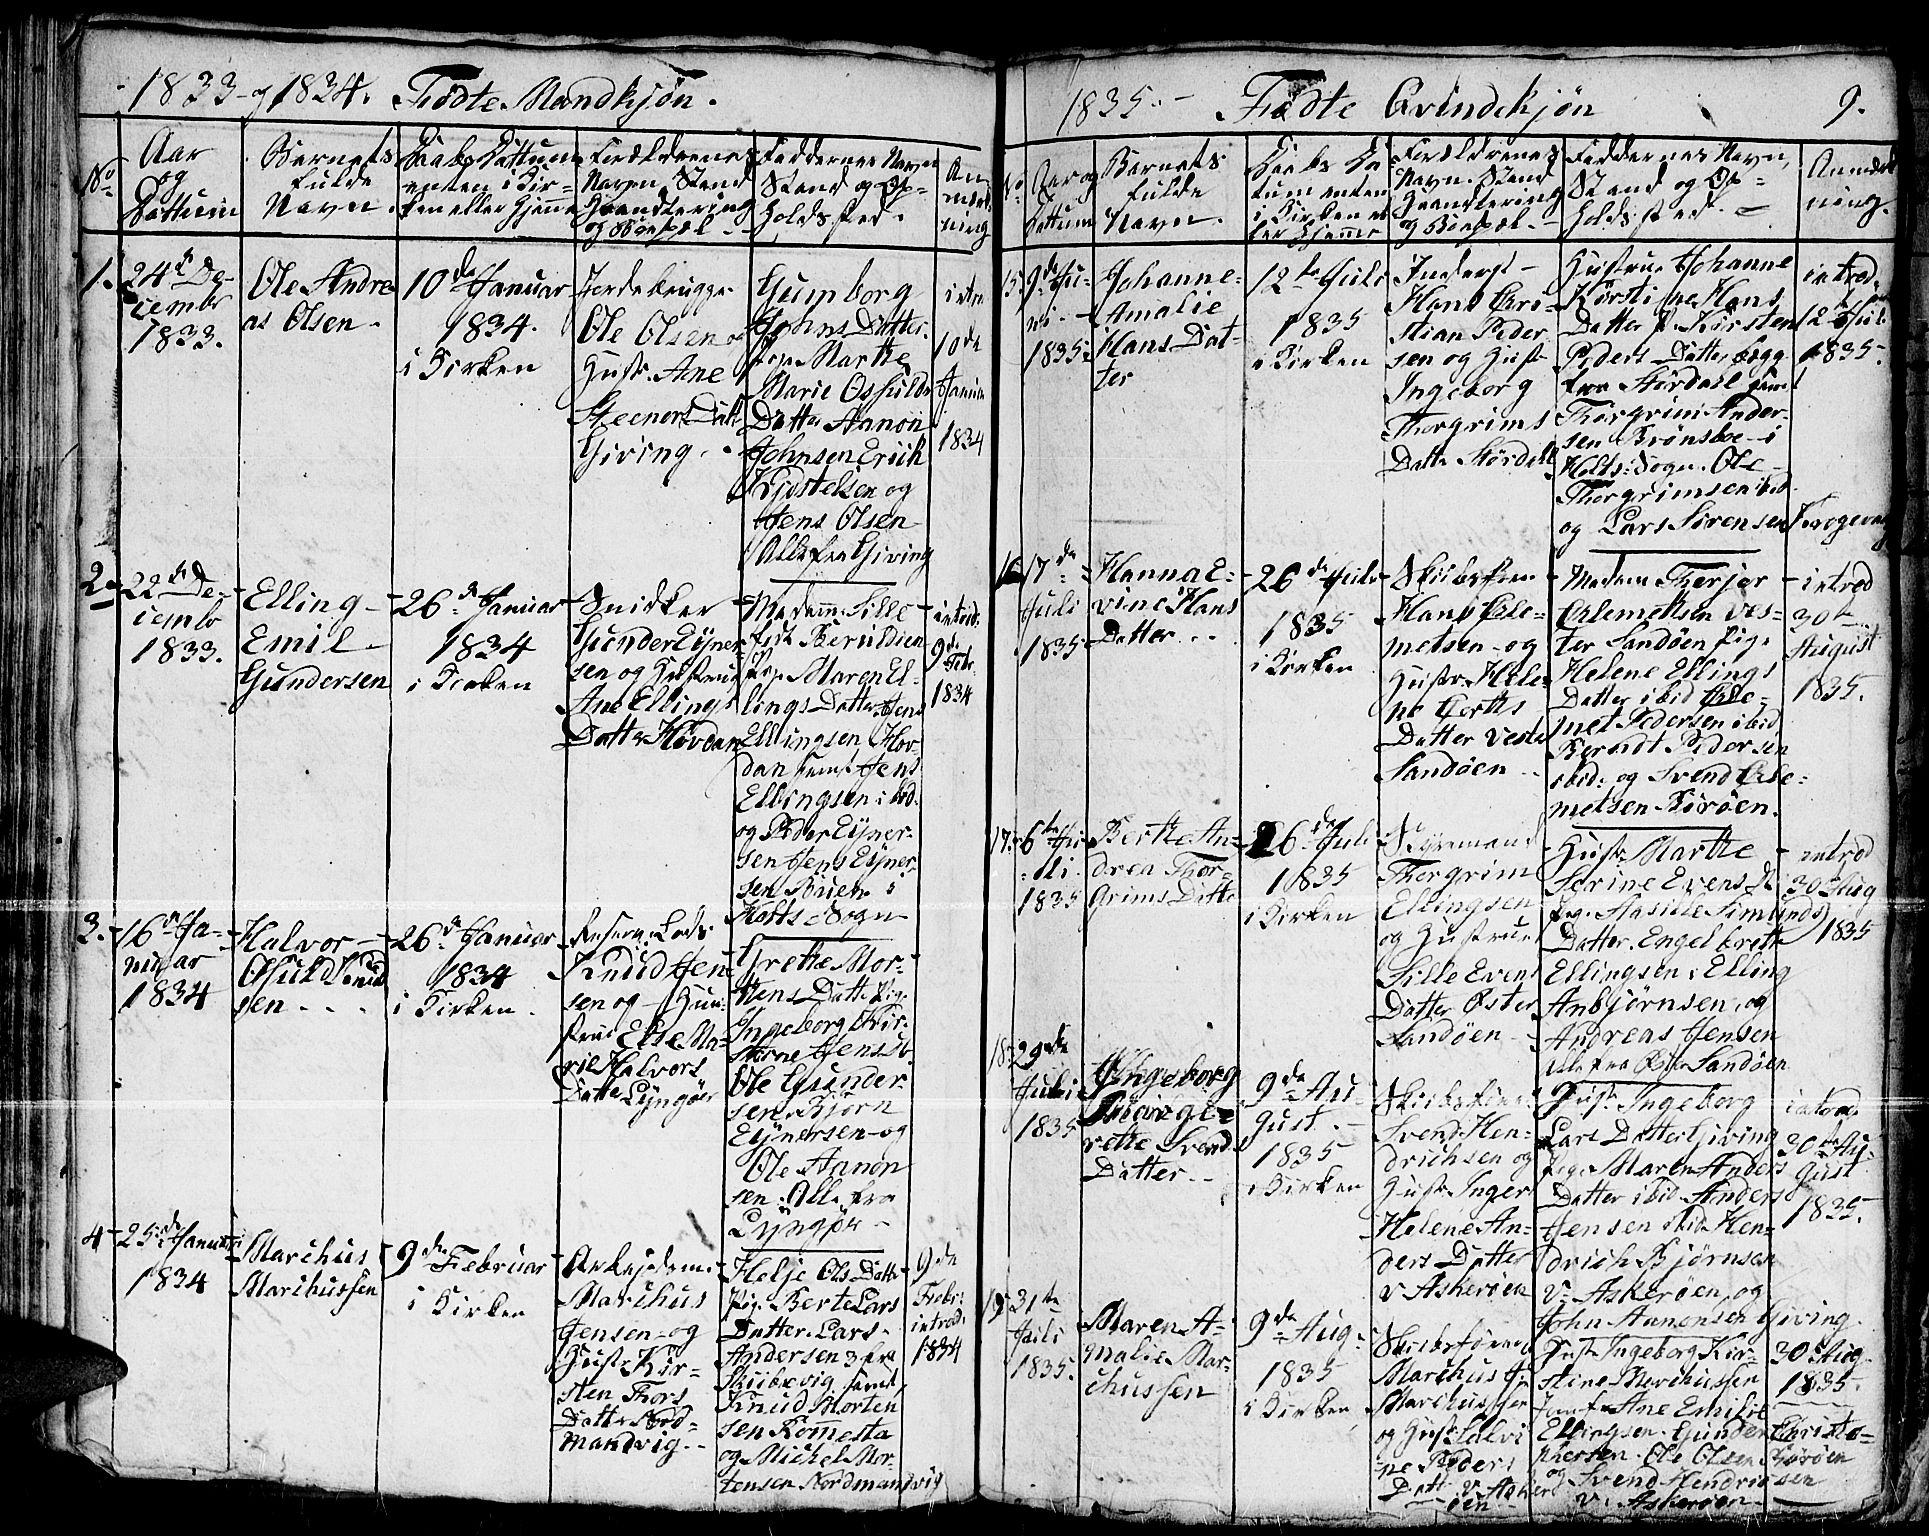 1833 og 1834. Fødte Mandkjøn.
No
Aar
og
Dattum
Barnets
fulde
Navn.
Daabs Dattum
enten i Kir-
ken eller Hjemme
Forældrenes
Navn, Stand
Haandtering
og Boepæl
Faddernes Navn
Stand og Op-
holdssted.
An
mærk
ning
1.
24de De-
cembr
1833.
Ole Andre
as Olsen
10de Januar
1834.
i Kirken
Jordebrugger
Ole Olsen og
Hustr. Ane
Steeners Datt
Giving.
Gumborg
Johns Datter
Pige Marthe
Marie Osfulds
Datter Aanon
Johnsen Erich
Kjostelsen og
Jens Olsen
Alle fra Giving
introd
10de
Januar
1834
2.
22de De-
cembr
1833.
Elling
Emil
Gundersen
26de Januar
1834
i Kirken
Snidker
Gunder Eyner
sen og Hustrue
Ane Ellings
Datter Hovdan
Madam Sille
Pige Maren El-
lings Datter Jens
Ellingsen Hov-
dan samt Jens
Ellingsen ibid.
og Peder Eyner-
sen Jens Eyner-
sen Buen i
Holts Sogn
introd:
9de
Febr.
1834
3.
16de Ja-
nuar
1834
Halvor
Osuld Knud
sen
26de Januar
1834
i Kirken.
Reserve Lods
Knud Jen
sen og Hu-
strue Else Ma-
rie Halvors
Datter Lyngøer
Grethe Mor-
tens Datter Pige
Ingeborg Kir-
stine Jens D.
Ole Gunder
sen Bjørn
Eynersen og
Ole Aanon
sen. Alle fra
Lyngør
4
25de Januari
1834
Marchus
Marchussen
9de Februar
i Kirken
Arbejdsm.
Marchus
Jensen og
Hustr. Kir-
sten Thors
Datter Nord-
mandvig.
Helje Ols Datter
Pig. Berte Lars
Datter. Lars
Andersen 3 fra
Skibevig samt
Knud Morten
sen Romesta
og Michel Mor-
tensen Nordmandvig
9de
Febr:
introd:
1834
1835. Fødte Qvindekjøn 9.
No
Aar og
Dattum
Barnets
fulde
Navn.
Daabs Da
tum enten
i Kirken el
ler Hjemme
Forældrenes
Navn. Stand
Haandtering
og Boepæl.
Faddernes Navn,
Stand og Op=
holdssted.
Anmærk
ning.
15.
9de Ju-
ni.
1835.
Johanne
Amalie
Hans Dat-
ter
12te Juli
1835
i Kirken
Inderst
Hans Chri-
stian Peder
sen og Hust
Ingeborg
Thorgrims
Datter Størdahl
Hustrue Johanne
Kirstine Hans
Datter P. Kirsten
Peders Datter begge
fra Størdahl samt
Thorgrim Ander-
sen Brønsboe i
Holts Sogn. Ole
Thorgrimsen ibid
og Lars Sørensen Krogevaag
introd.
12 Juli
1835.
16
17de
Juli
1835
Hanna E-
vine Hans
Datter
26de Juli
1835
i Kirken
Skibsfører
Hans Cle-
metsen og
Hustr. Hele-
ne Gerths
Datter Vester
Sandøen
Madam Therjer
Clemetsen Ves-
ter Sandøen Pige
Helene Ellings
Datter ibid Cle-
met Pedersen ibid
Berndt Pedersen
ibid: og Svend Cle-
metsen Borøen.
introd
30te
August
1835.
17.
6te Ju-
li.
1835
Berthe An-
drea Thor-
grims Datter
26de Juli
1835
i Kirken
Styremand
Thorgrim
Ellingsen
og Hustrue
Sille Evens
Datter Øster
Sandøen
Hustr Marthe
Serine Evens D.
Pige Aasille Simunds
Datter. Engelbrett
Ellingsen, Elling
Anbjørnsen, og
Andreas Jensen
alle fra Øster Sandøen
introd
30te Aug
1835
18.
29de
Juli
1835
Ingeborg
Severthe Svend
Datter
9de Au-
gust.
1835
i Kirken
Skibsfører
Svend Hen-
drichsen og
Hustr. Inger
Helene An-
ders Datter
v Askerøen
Hustr. Ingeborg
Lars Datter Giving
Pige Maren Anders
Datter ibid Anders
Jensen ibid Hen-
drich Bjørnsen
V. Askerøen, og
John Aanonsen Giving
introd
30te Au-
gust
1835.
19
31te
Juli
1835.
Maren A-
malie Mar-
chussen
9de Aug.
1835
i Kirken
Skibsfører
Marchus
Marchussen
og Hustr. Salvi
ne Peders
Datt. v. Asker
øen
Hustr Ingeborg Kir-
stine Marchussen
Jomf. Ane Emilie
Ellingsen. Gunder Christo-
phersen. Ole Olsen Borøen
og Svend Hendrichsen
V. Askerøen.
30te Aug
1835.